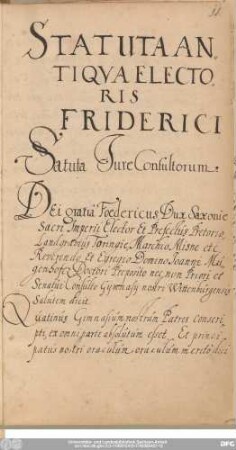 STATUTA AN
TIQVA ELECTO
RIS
FRIDERICI
Statuta Jure Consultorum.
Dei gratia Foedericus Dux Saxonie
Sacri Imperij Elector Et Prefectus Pretorio
Landgrauius Toringie, Marchio Misne etc
Reverendo Et Egregio Domino Joanni
Doctori Preposito nec non Preori et
Senatus Consulto Gymnasij nostri Wittenburgensis
Salutem dicit.
Quatinus Gimnasium nostrum Patres conscri
pti, ex omni parte absolutum esset, Et princi
patus nostri oraculum, oraculum merito dici